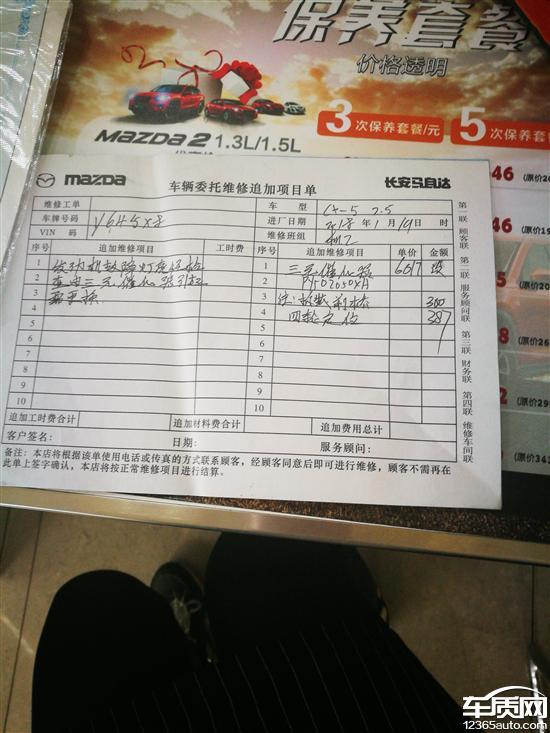 保养套餐
价格透明
MAZDA 2 1.3L/1.5L
3次保养套餐/元
5次保养套餐
mazDa
长安马自达
车辆委托维修追加项目单
维修工单
车型 CX-5 2.5
车牌号码 Y645X8
进厂日期 年1月19日
VIN 码
维修班组 机工
序号 追加维修项目 工时费 序号 追加维修项目 单价 金额
1 发动机故障灯亮经检 1 三元催化器 6617
2 查由三元催化器引起 2 PY022050XA
3 需更换 3 300
4 4 四轮定位 387
5 5
6 6
7 7
8 8
9 9
10 10
追加工时费合计 追加材料费合计 追加费用总计
客户签名: 日期: 服务顾问:
备注:本店将根据该单使用电话或传真的方式联系顾客,经顾客同意后即可进行维修,顾客不需再在
此单上签字确认,本店将按正常维修项目进行结算。
第一联 顾客联 第二联 服务顾问联 第三联 财务联 第四联 维修车间联
46
(原价20
车质网
12365auto.com